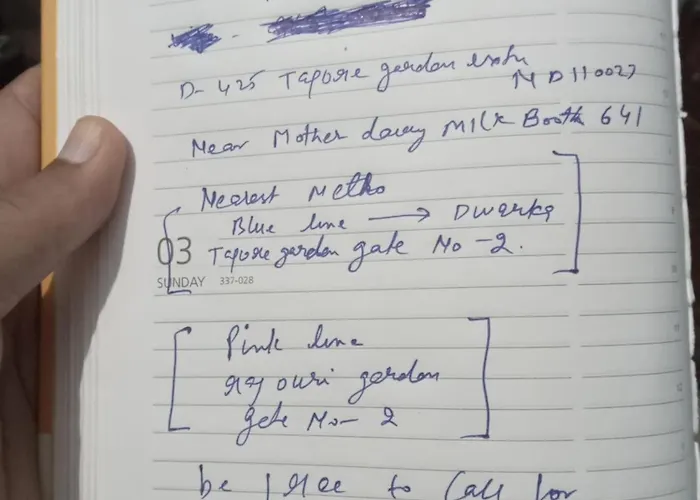 D-425 Tagore garden extn
N D 110027
Near Mother dairy Milk Booth 641
Nearest Metro
Blue line → Dwarka
03 Tagore garden gate No-2.
SUNDAY 337-028
Pink line
Rajouri garden
gate No-2
be free to Call for